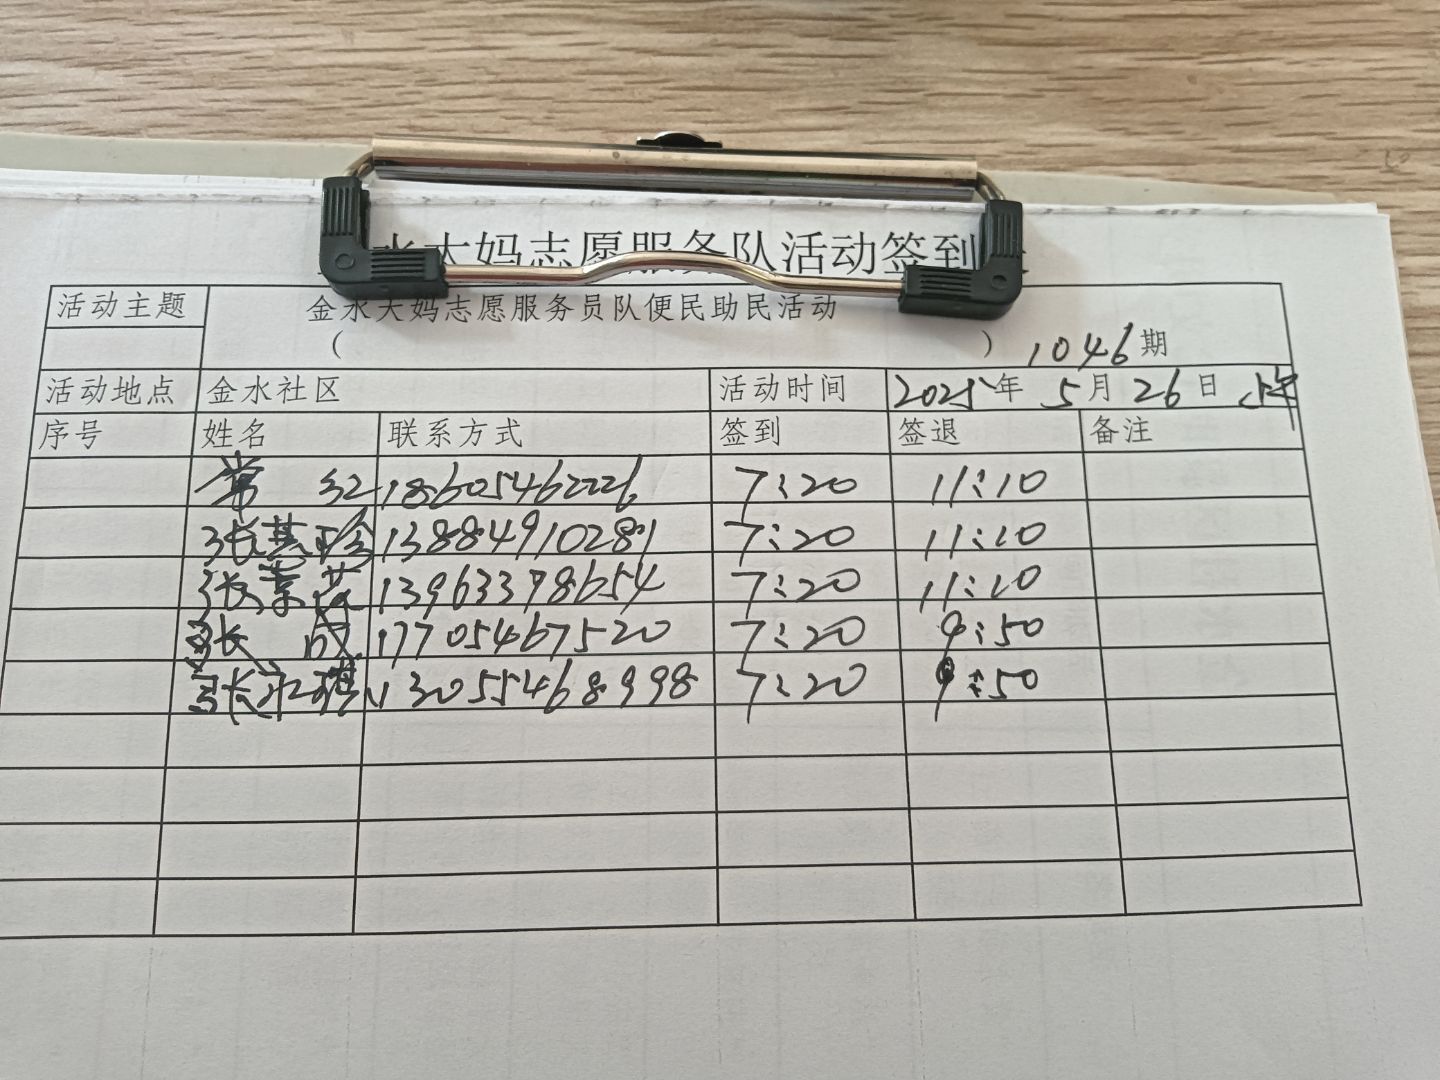 水大妈志愿服务队活动签到
活动主题 金水大妈志愿服务员队便民助民活动
( ) 1046期
活动地点 金水社区 活动时间 2025年 5月26日 上午
序号 姓名 联系方式 签到 签退 备注
常 红 18605462226 7:20 11:10
张其珍 13884910281 7:20 11:10
张 13963378654 7:20 11:10
张 成 17705467520 7:20 9:50
张永琪 13055468998 7:20 9:50